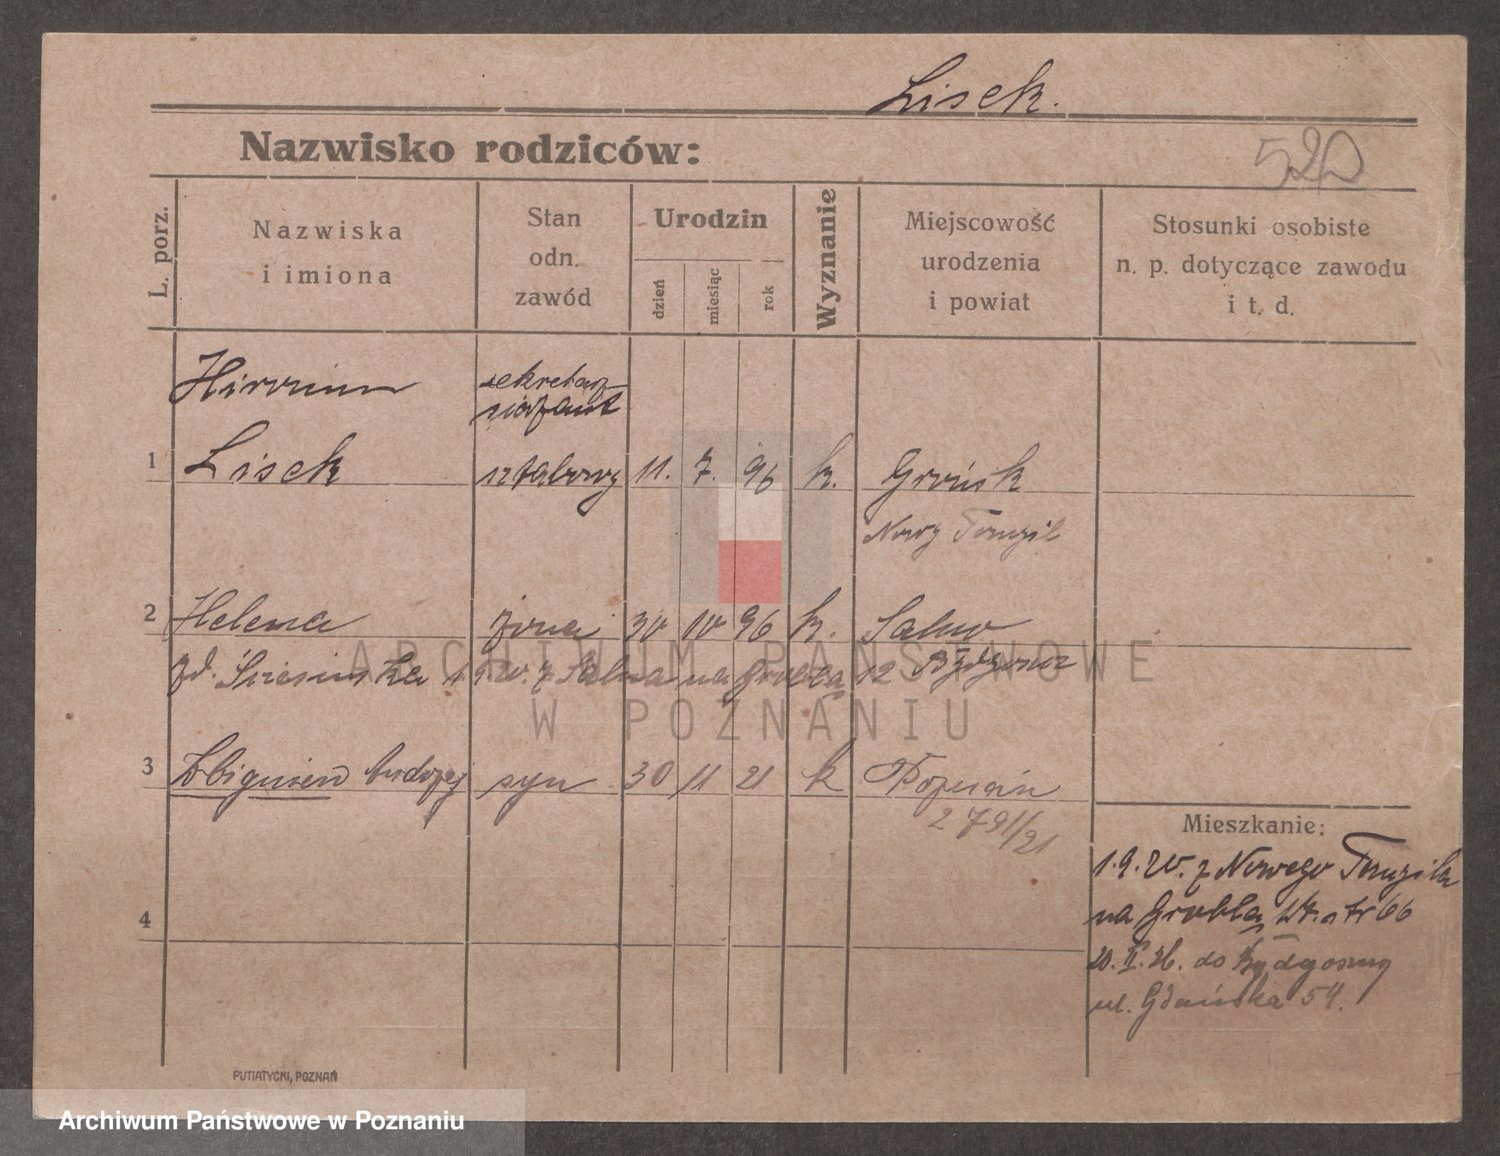 Lisek.
Nazwisko rodziców:
520
L. porz.
Nazwiska
i imiona
Stan
odn.
zawód
Urodzin
dzień
miesiąc
rok
Wyznanie
Miejscowość
urodzenia
i powiat
Stosunki osobiste
n. p. dotyczące zawodu
i t. d.
sekretarz
1 Lisek sztabowy 11. 7. 96 k. Grońsk
Nowy Tomyśl
2 Helena żona 30 10 96 k. Salno
z Salna na Groblą 12 Bydgoszcz
3 Zbigniew Andrzej syn 30 11 21 k Poznań
2791/21
4
Mieszkanie:
1.9.20. z Nowego Tomyśla
na Groblą
20. II. 26. do Bydgoszczy
ul. Gdańska 54.
PUTIATYCKI, POZNAŃ
ARCHIWUM PAŃSTWOWE
W POZNANIU
Archiwum Państwowe w Poznaniu